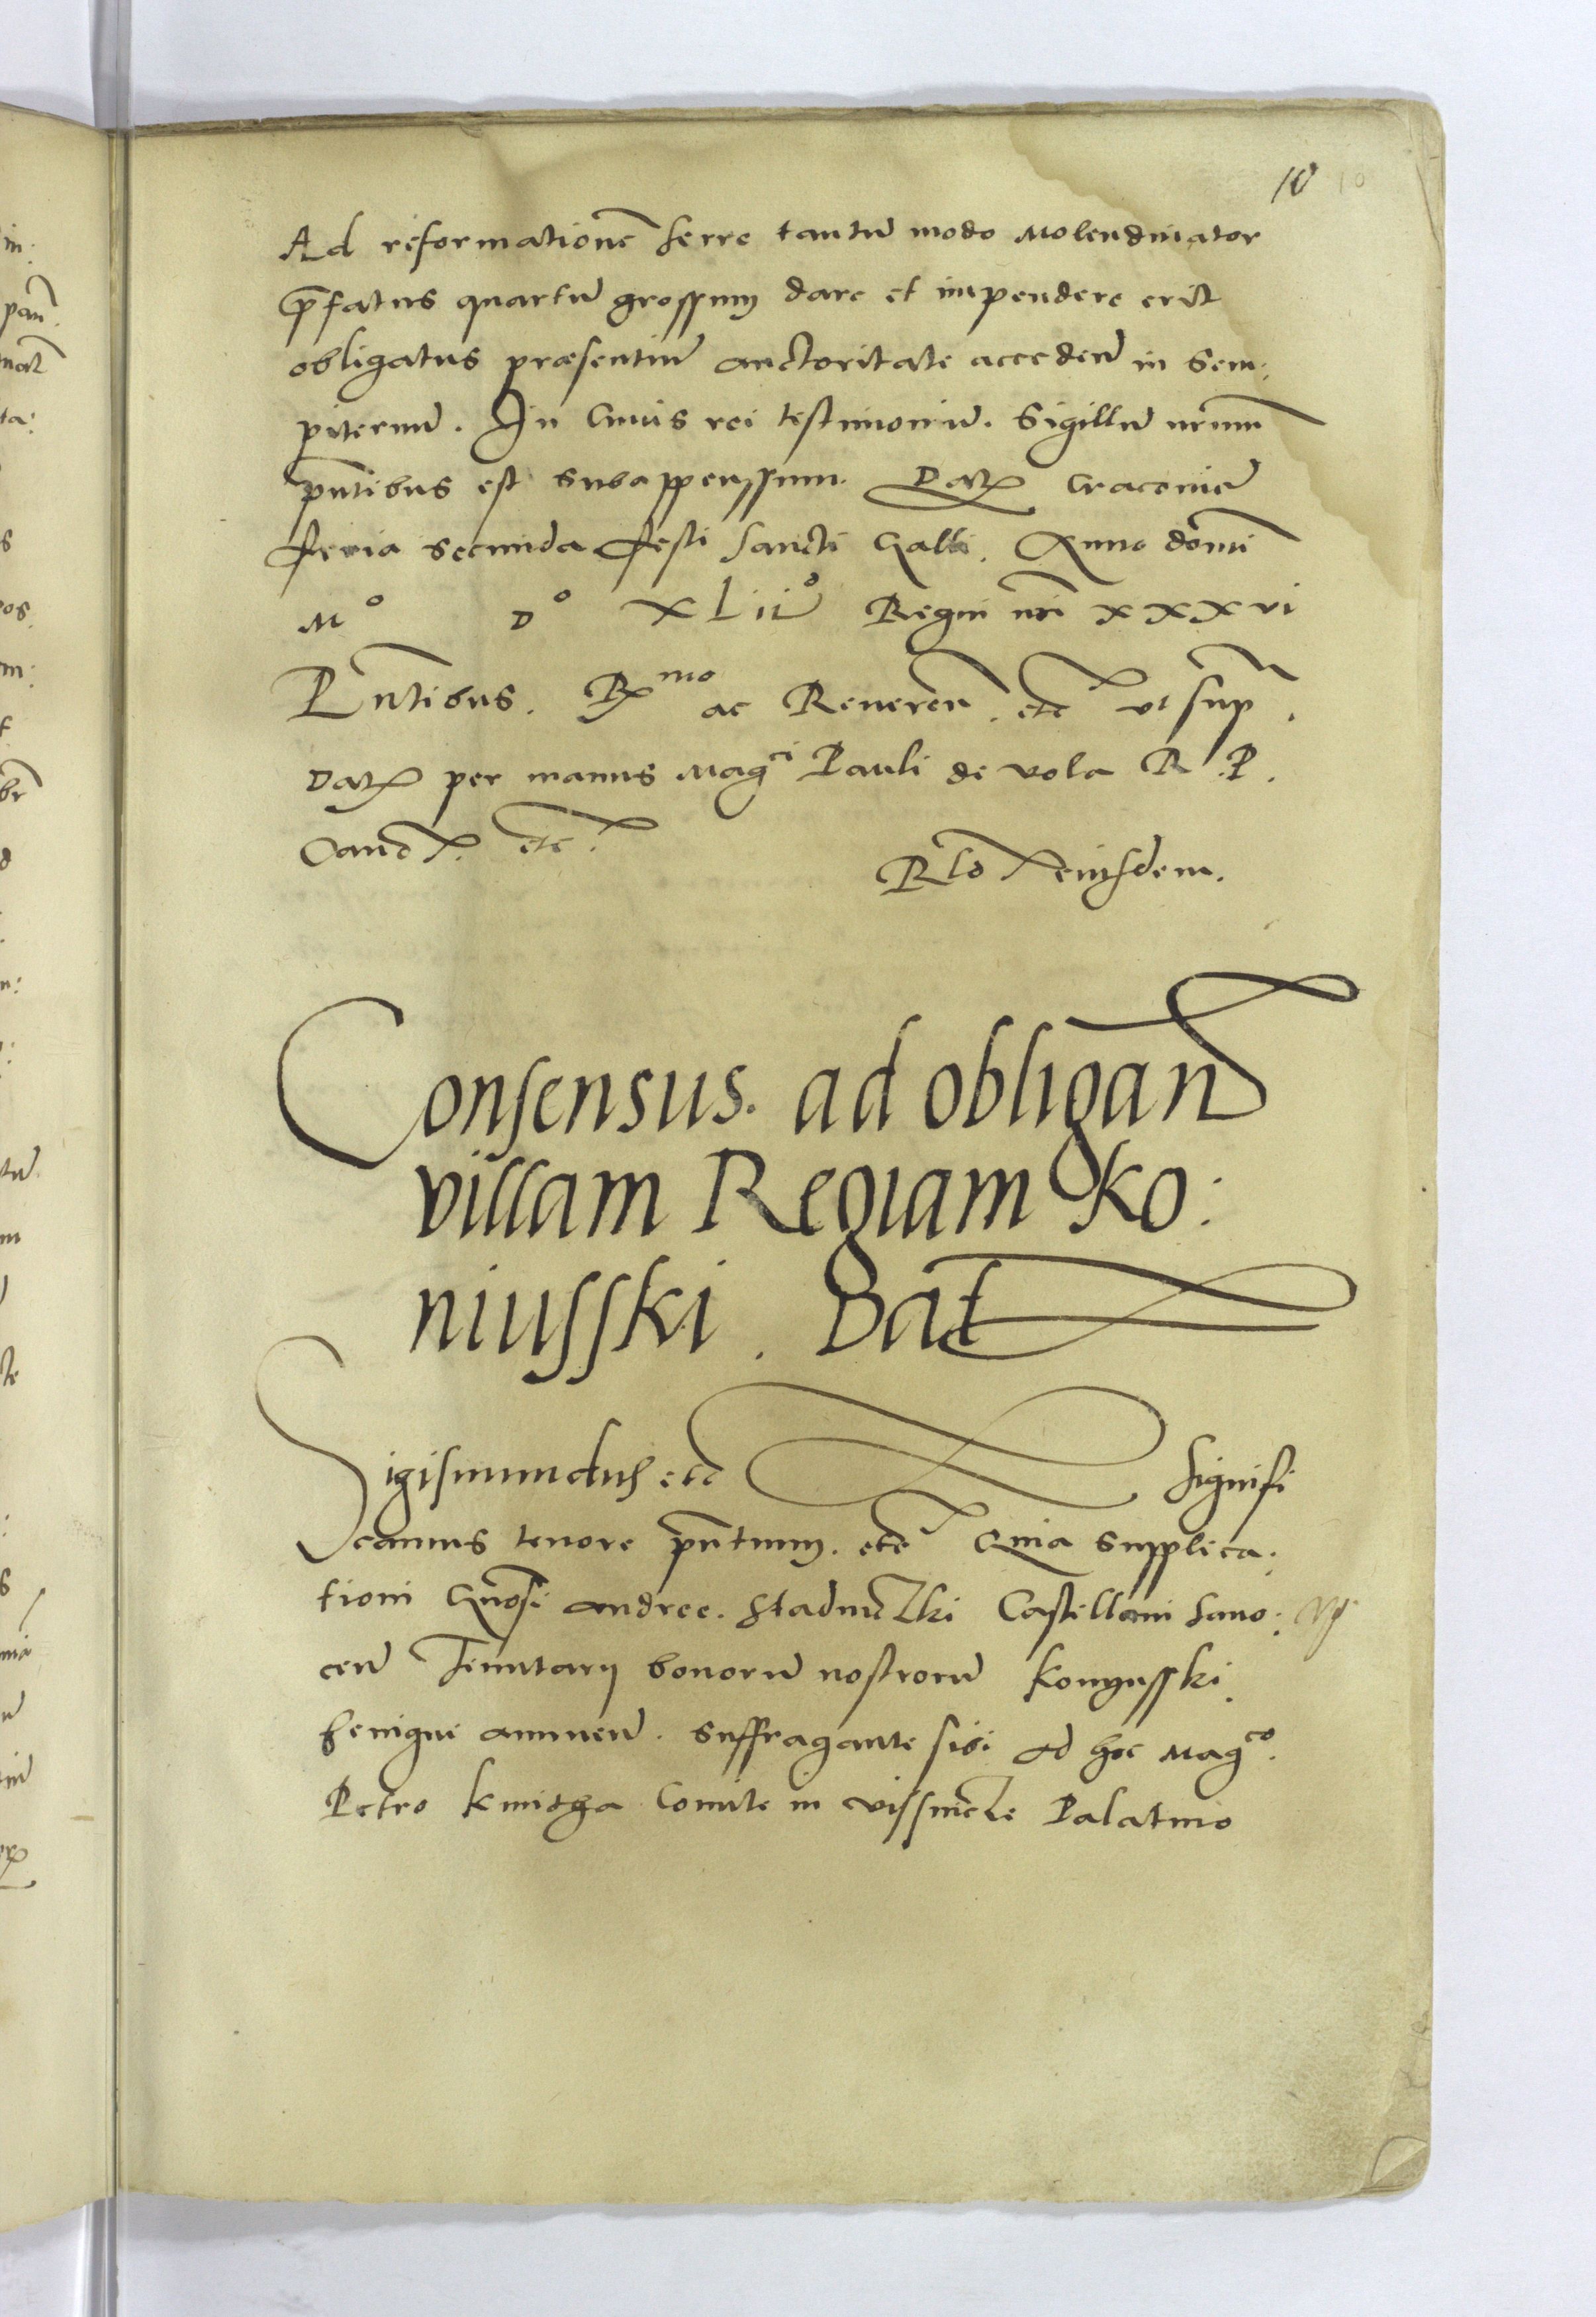 10 10
Ad reformationẽ ferre tantũ modo Molendinator
p̃fatus quartũ grossum dare et impendere erit
obligatus præsentiũ auctoritate acceden̄ in Sem:
piternũ. In Cuius rei testimoniũ. Sigillũ nr̃um
pñtibus est subappenssum. Dat Cracoviæ
feria secunda festi Sancti Galli. Anno domi
Mᵒ Dᵒ XLIIᵒ Regni nr̃i xxxvi
Pñtibus. Rmo ac Reveren̄. etc̃ ut sup̃.
Dat per manus Magci Pauli de vola R. P.
Canc. etc̃.
Rlo eiusdem.
Consensus. ad obligan̄
villam Regiam Ko:
niusski. Dat̃
Sigismundus etc̃ Signifi
camus tenore pñtium. etc̃ Quia supplica:
tioni Gñosi andree. Stadniczki Castellani Sano:
cen̄ Tenutarij bonorũ nostrorũ Konyusski
benigne annuen̄. Suffragante sibi ad hoc Magco.
Petro kmitha Comite in vissnicze Palatino